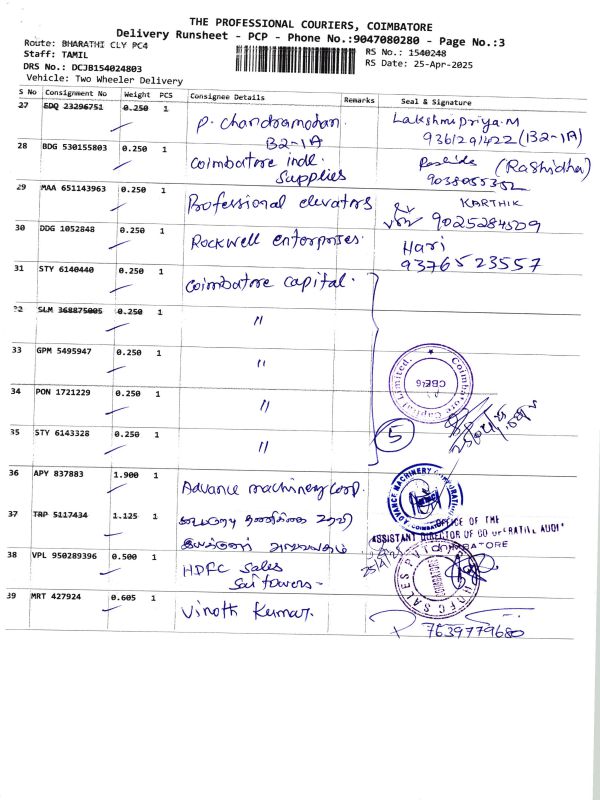 THE PROFESSIONAL COURIERS, COIMBATORE
Delivery Runsheet - PCP - Phone No.:9047080280 - Page No.:3
Route: BHARATHI CLY PC4
RS No.: 1540248
Staff: TAMIL
RS Date: 25-Apr-2025
DRS No.: DCJB154024803
Vehicle: Two Wheeler Delivery
S No Consignment No Weight PCS Consignee Details Remarks Seal & Signature
27 EDQ 23296751 0.250 1 P. Chandramohan. Lakshmipriya.M
B2-1A 9361291422 (B2-1A)
28 BDG 530155803 0.250 1 Coimbatore indl. (Rashidha)
Supplies 9038055352
29 MAA 651143963 0.250 1 Professional elevators KARTHIK
9025284509
30 DDG 1052848 0.250 1 Rockwell enterprises. Hari
9376523557
31 STY 6140440 0.250 1 Coimbatore capital.
32 SLM 368875005 0.250 1 "
33 GPM 5495947 0.250 1 "
Coimbatore Capital Limited.
CBE46
34 PON 1721229 0.250 1 "
35 STY 6143328 0.250 1 "
5
36 APY 837883 1.900 1 Advance machinery Corp.
ADVANCE MACHINERY CORPORATION
COIMBATORE
37 TRP 5117434 1.125 1
OFFICE OF THE
ASSISTANT DIRECTOR OF CO OPERATIVE AUDIT
COIMBATORE
38 VPL 950289396 0.500 1 HDFC Sales 25/4/25
Sai towers-
HDFC SALES PVT
COIMBATORE
39 MRT 427924 0.605 1 Vinoth Kumar.
7639779680